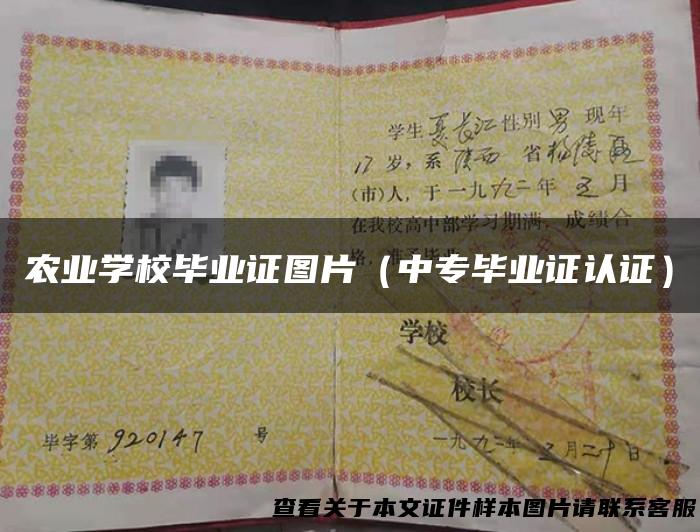 学生夏长江性别男现年
17岁,系陕西省杨陵区
(市)人,于一九九二年五月
在我校高中部学习期满,成绩合
格,准予毕业
农业学校毕业证图片(中专毕业证认证)
学校
校长
毕字第920147号
一九九二年五月二十日
查看关于本文证件样本图片请联系客服